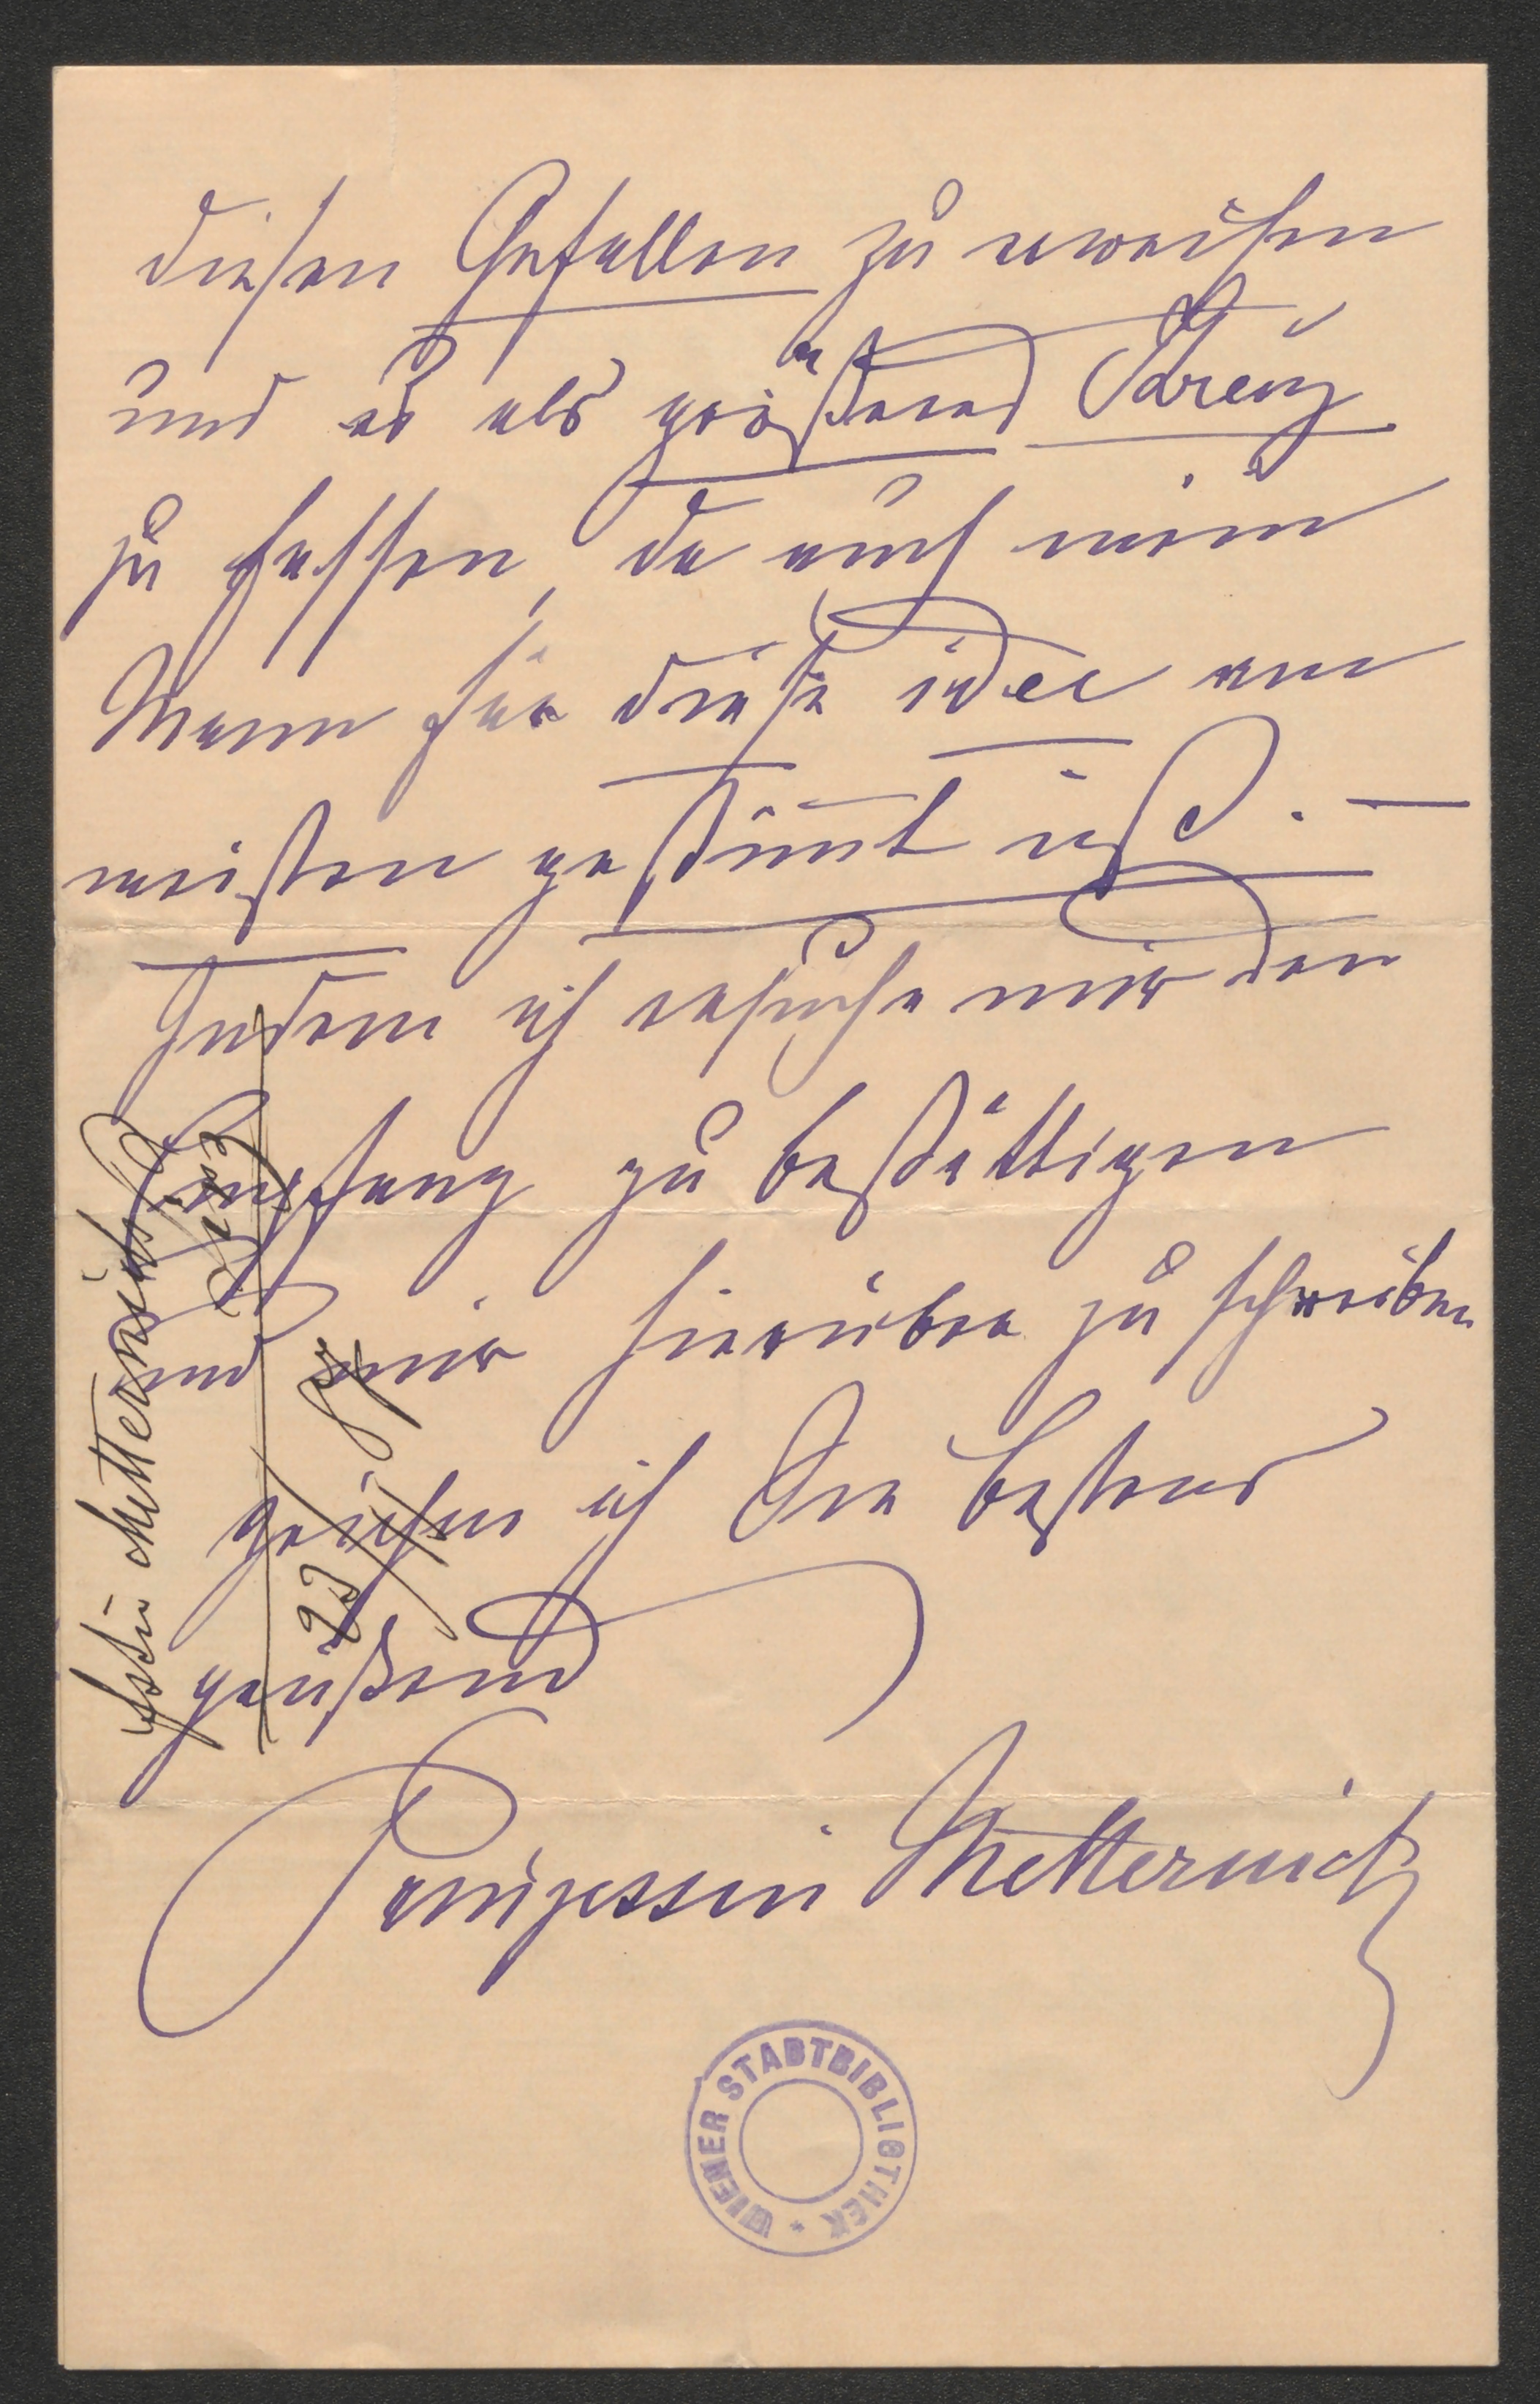 diesen Gefallen zu erweisen
und es als größeres Kreuz
zu fassen, da auch mein
Mann für diese idee am
meisten gestimmt ist. —
Indem ich ersuche mir den
Empfang zu bestättigen
und mir hierüber zu schreiben
ich Sie bestens
grüßend
Prinzessin Metternich
Fstin Metternich
WIENER STADTBIBLIOTHEK